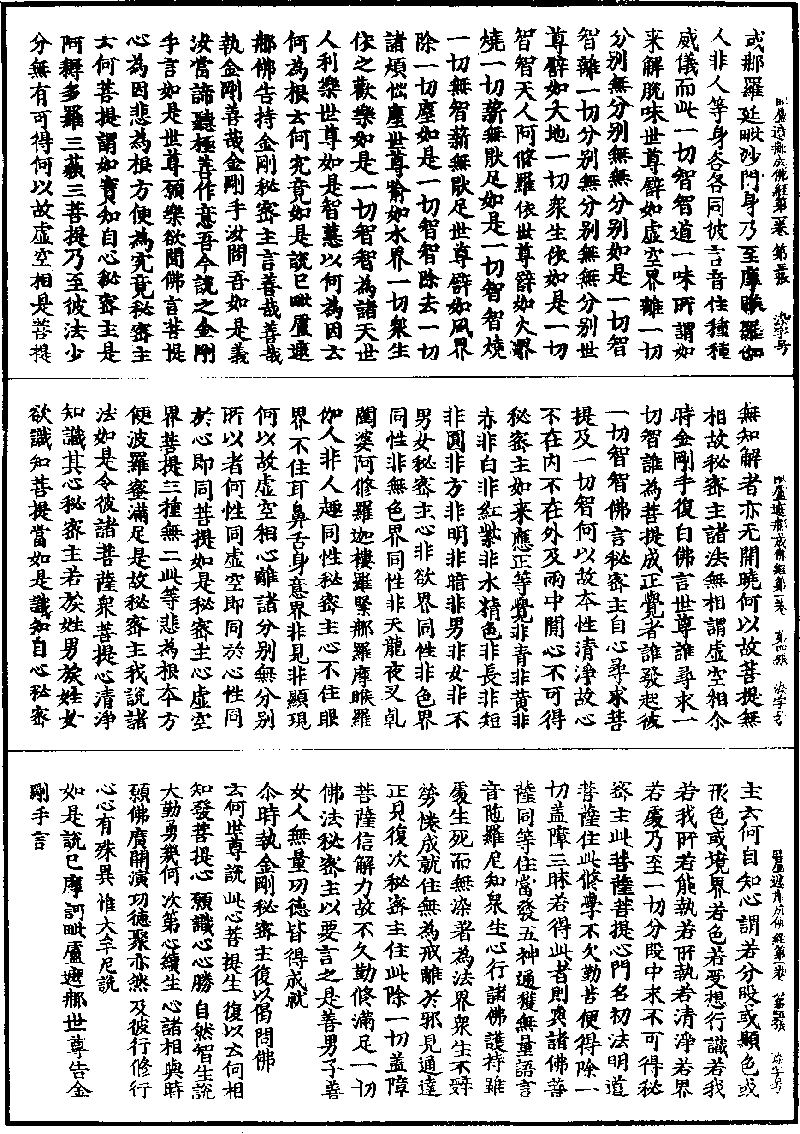 或那羅延毗沙門身乃至摩睺羅伽
人非人等身各各同彼言音住種種
威儀而此一切智智道一味所謂如
來解脫味世尊譬如虛空界離一切
分別無分別無無分別如是一切智
智離一切分別無分別無無分別世
尊譬如大地一切衆生依如是一切
智智天人阿脩羅依世尊譬如火界
燒一切薪無猒足如是一切智智燒
一切無智薪無猒足世尊譬如風界
除一切塵如是一切智智除去一切
諸煩惱塵世尊喻如水界一切衆生
依之歡樂如是一切智智為諸天世
人利樂世尊如是智慧以何為因云
何為根云何究竟如是說已毗盧遮
那佛告持金剛秘密主言善哉善哉
執金剛善哉金剛手汝問吾如是義
汝當諦聽極善作意吾今說之金剛
手言如是世尊願樂欲聞佛言菩提
心為因悲為根方便為究竟秘密主
云何菩提謂如實知自心秘密主是
阿耨多羅三藐三菩提乃至彼法少
分無有可得何以故虛空相是菩提
無知解者亦无開曉何以故菩提無
相故秘密主諸法無相謂虛空相尒
時金剛手復白佛言世尊誰尋求一
切智誰為菩提成正覺者誰發起彼
一切智智佛言秘密主自心尋求菩
提及一切智何以故本性清淨故心
不在內不在外及兩中間心不可得
秘密主如來應正等覺非青非黃非
赤非白非紅紫非水精色非長非短
非圓非方非明非暗非男非女非不
男女秘密主心非欲界同性非色界
同性非無色界同性非天龍夜叉乹
闥婆阿脩羅迦樓羅緊那羅摩睺羅
伽人非人趣同性秘密主心不住眼
界不住耳鼻舌身意界非見非顯現
何以故虛空相心離諸分別無分別
所以者何性同虛空即同於心性同
於心即同菩提如是秘密主心虛空
界菩提三種無二此等悲為根本方
便波羅蜜滿足是故秘密主我說諸
法如是令彼諸菩薩衆菩提心清淨
知識其心秘密主若族姓男族姓女
欲識知菩提當如是識知自心秘密
主云何自知心謂若分段或顯色或
形色或境界若色若受想行識若我
若我所若能執若所執若清淨若界
若處乃至一切分段中求不可得秘
密主此菩薩菩提心門名初法明道
菩薩住此修學不久勤苦便得除一
切盖障三昧若得此者則與諸佛菩
薩同等住當發五神通獲無量語言
音陁羅尼知衆生心行諸佛護持雖
處生死而無染著為法界衆生不辭
勞倦成就住無為戒離於邪見通達
正見復次秘密主住此除一切盖障
菩薩信解力故不久勤修滿足一切
佛法秘密主以要言之是善男子善
女人無量功德皆得成就
尒時執金剛秘密主復以偈問佛
云何世尊說 此心菩提生 復以云何相
知發菩提心 願識心心勝 自然智生說
大勤勇幾何 次第心續生 心諸相與時
願佛廣開演 功德聚亦然 及彼行修行
心心有殊異 惟大牟尼說
如是說已摩訶毗盧遮那世尊告金
剛手言